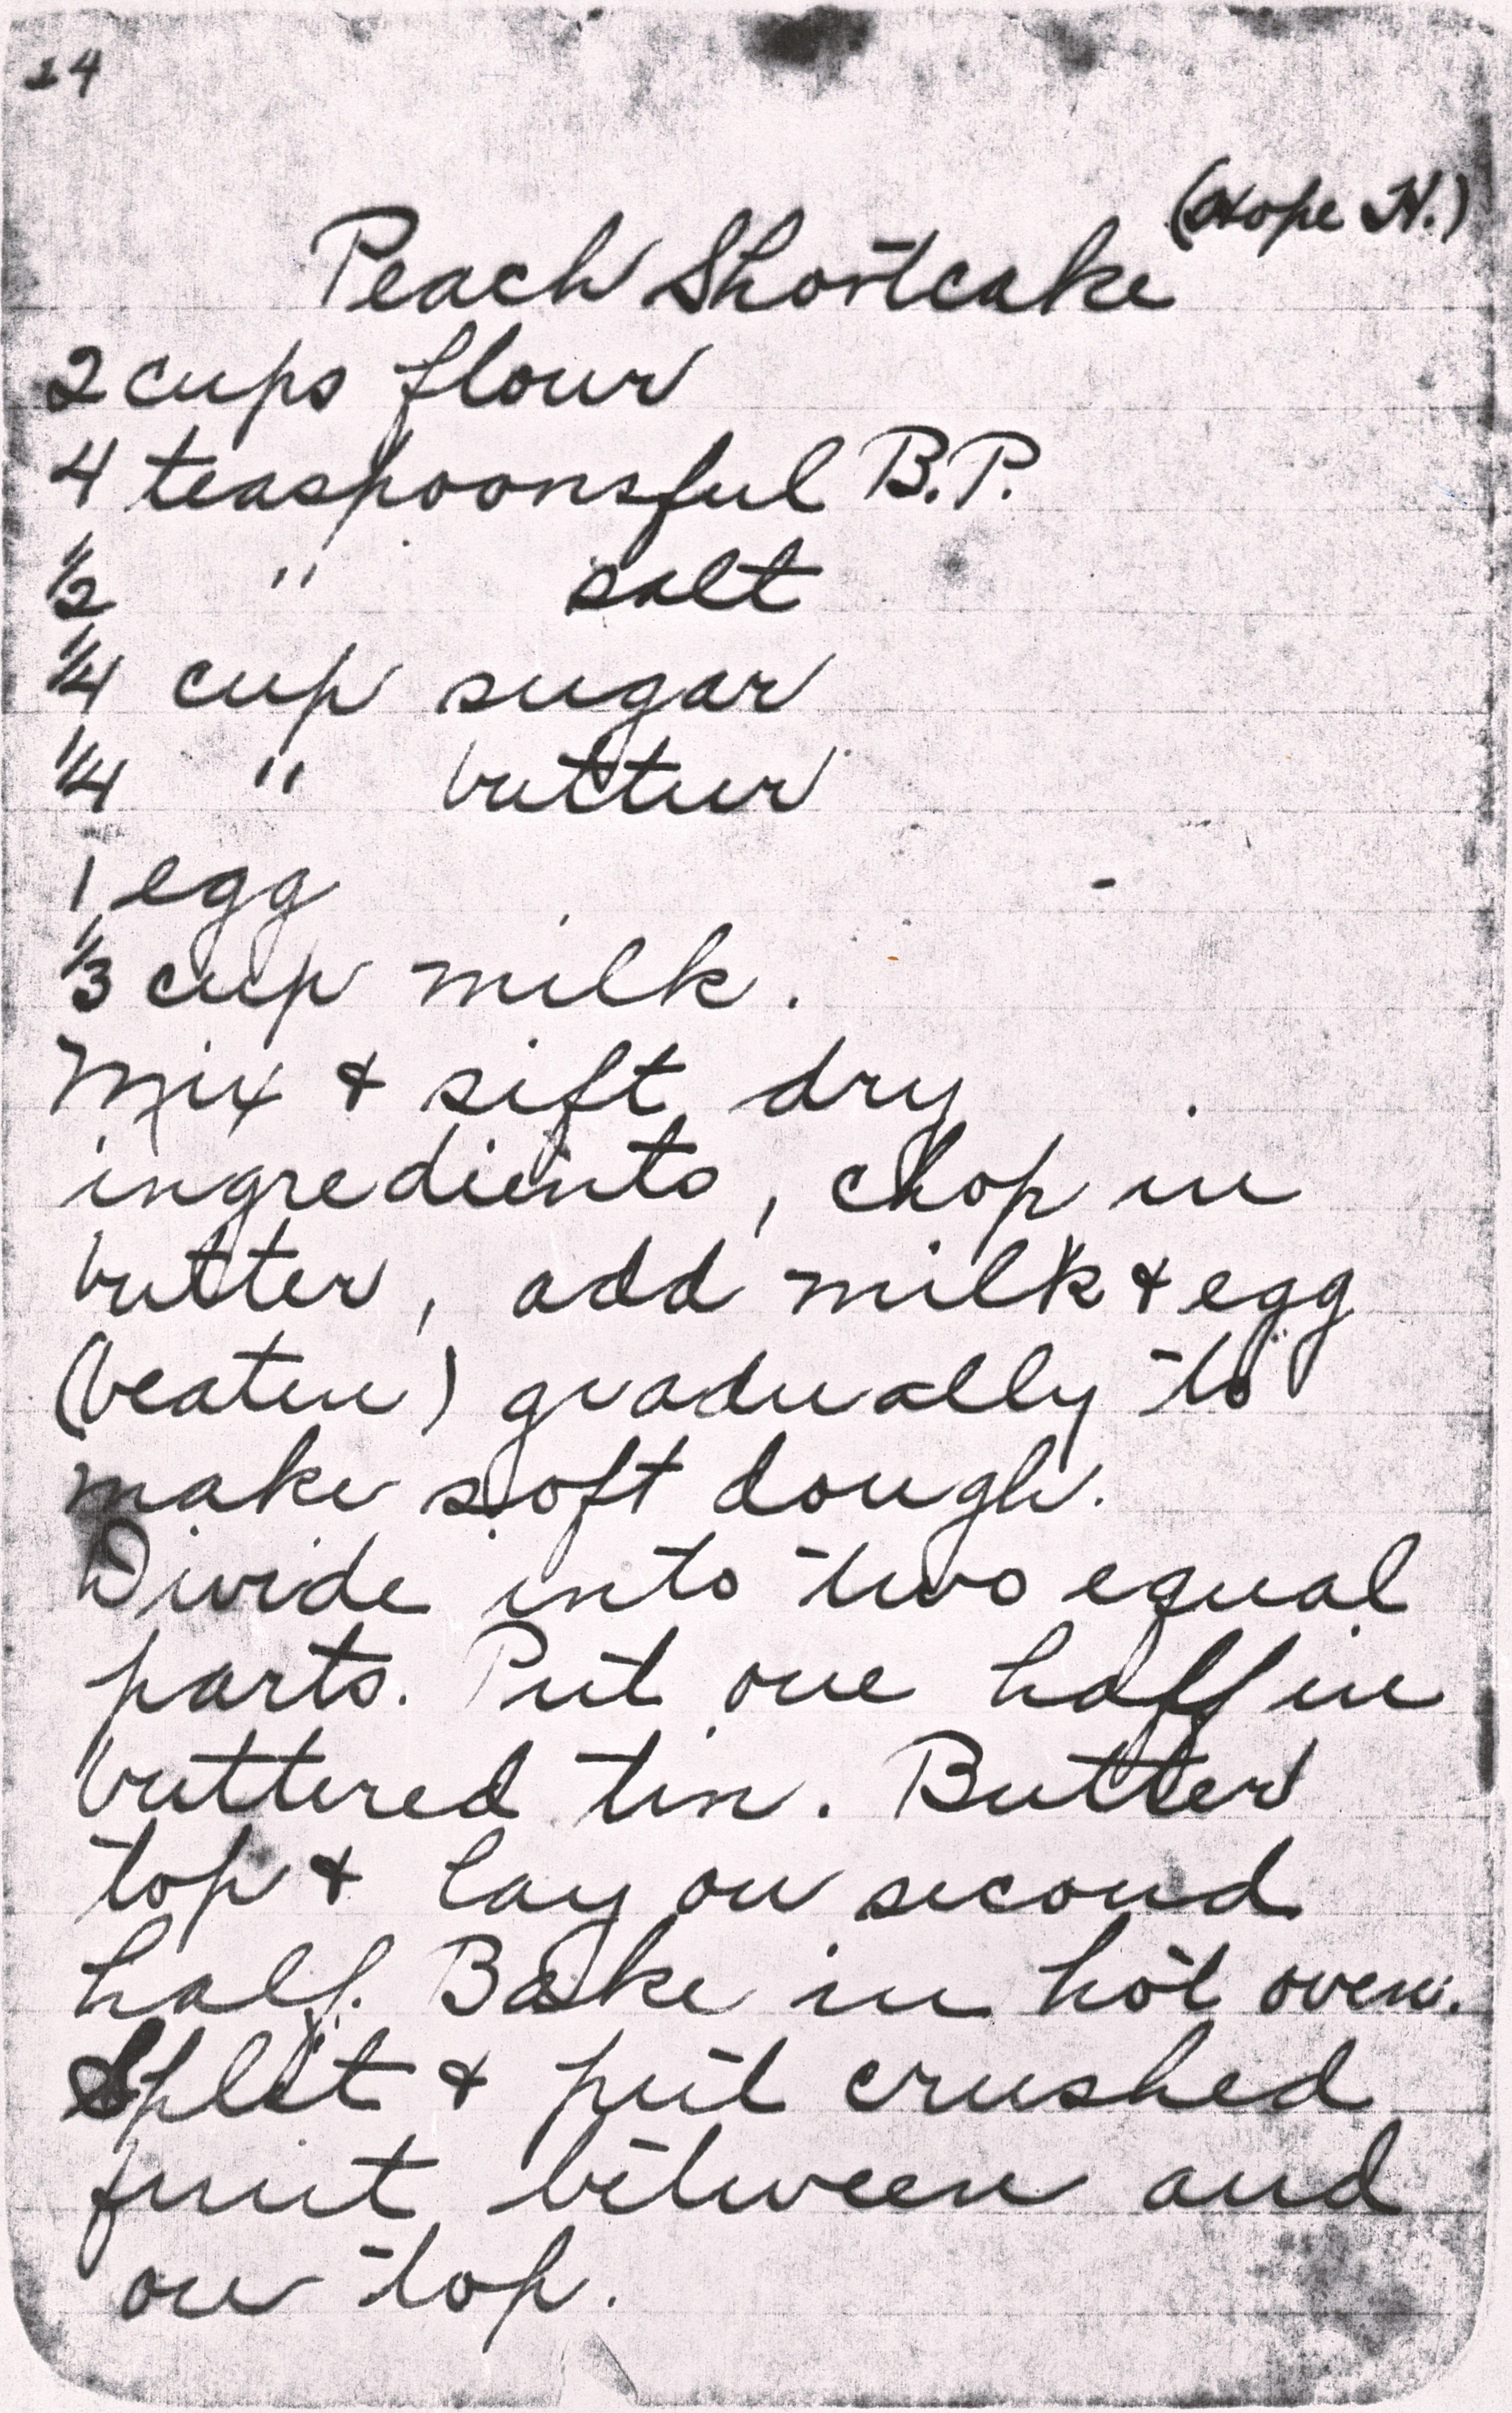 24
(Hope H.)
Peach Shortcake
2 cups flour
4 teaspoonsful B.P.
1/2 " salt
1/4 cup sugar
1/4 " butter
1 egg
1/3 cup milk.
Mix & sift dry
ingredients, chop in
butter, add milk & egg
(beaten) gradually to
make soft dough.
Divide into two equal
parts. Put one half in
buttered tin. Butter
top & lay on second
half. Bake in hot oven.
Split & put crushed
fruit between and
on top.